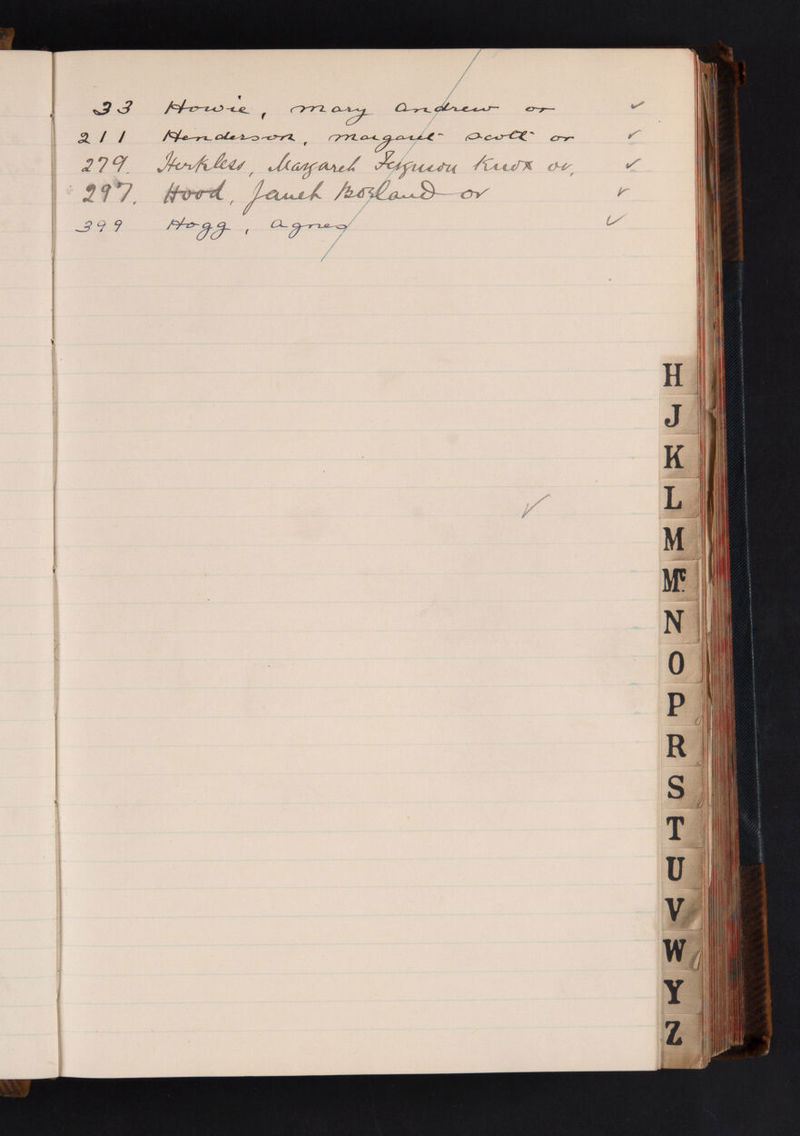 33 Howie, Mary Andrew or ✓
211 Henderson, Margaret Scott or ✓
279. Herkless, Margaret Ferguson Knox or, ✓
297. Hood, Janet Bogland or ✓
399 Hogg, Agnes ✓
✓
H
J
K
L
M
Mc
N
O
P
R
S
T
U
V
W
Y
Z